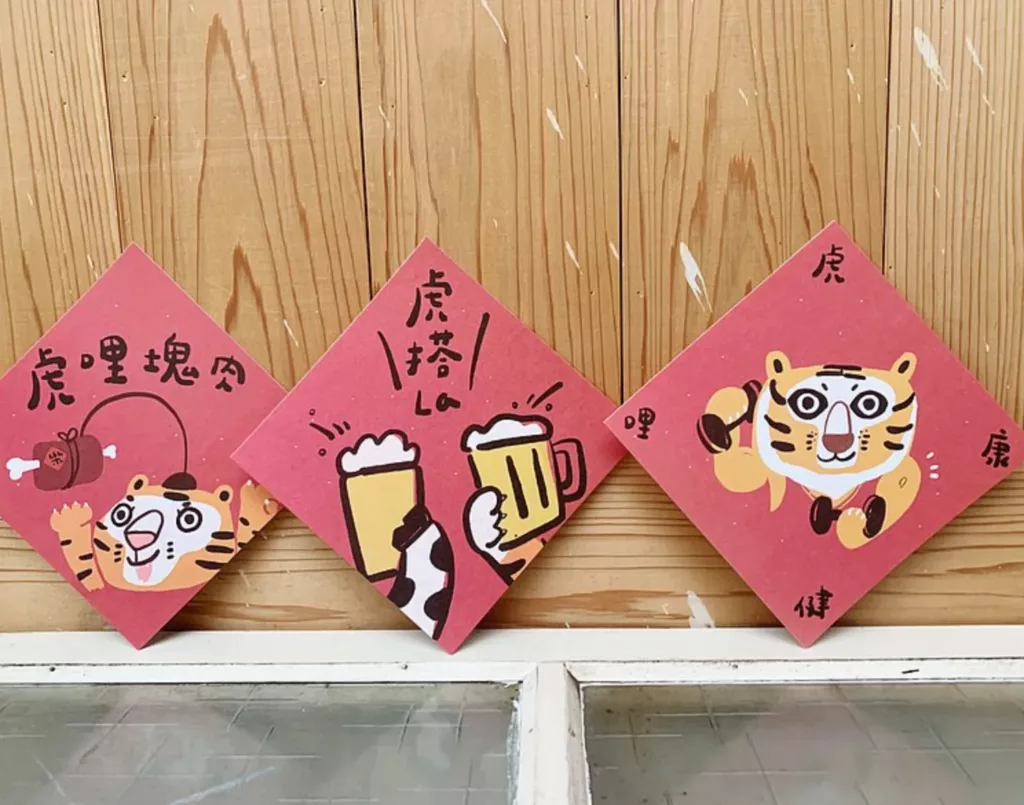 虎哩塊肉
虎
搭
La
虎
哩
康
健